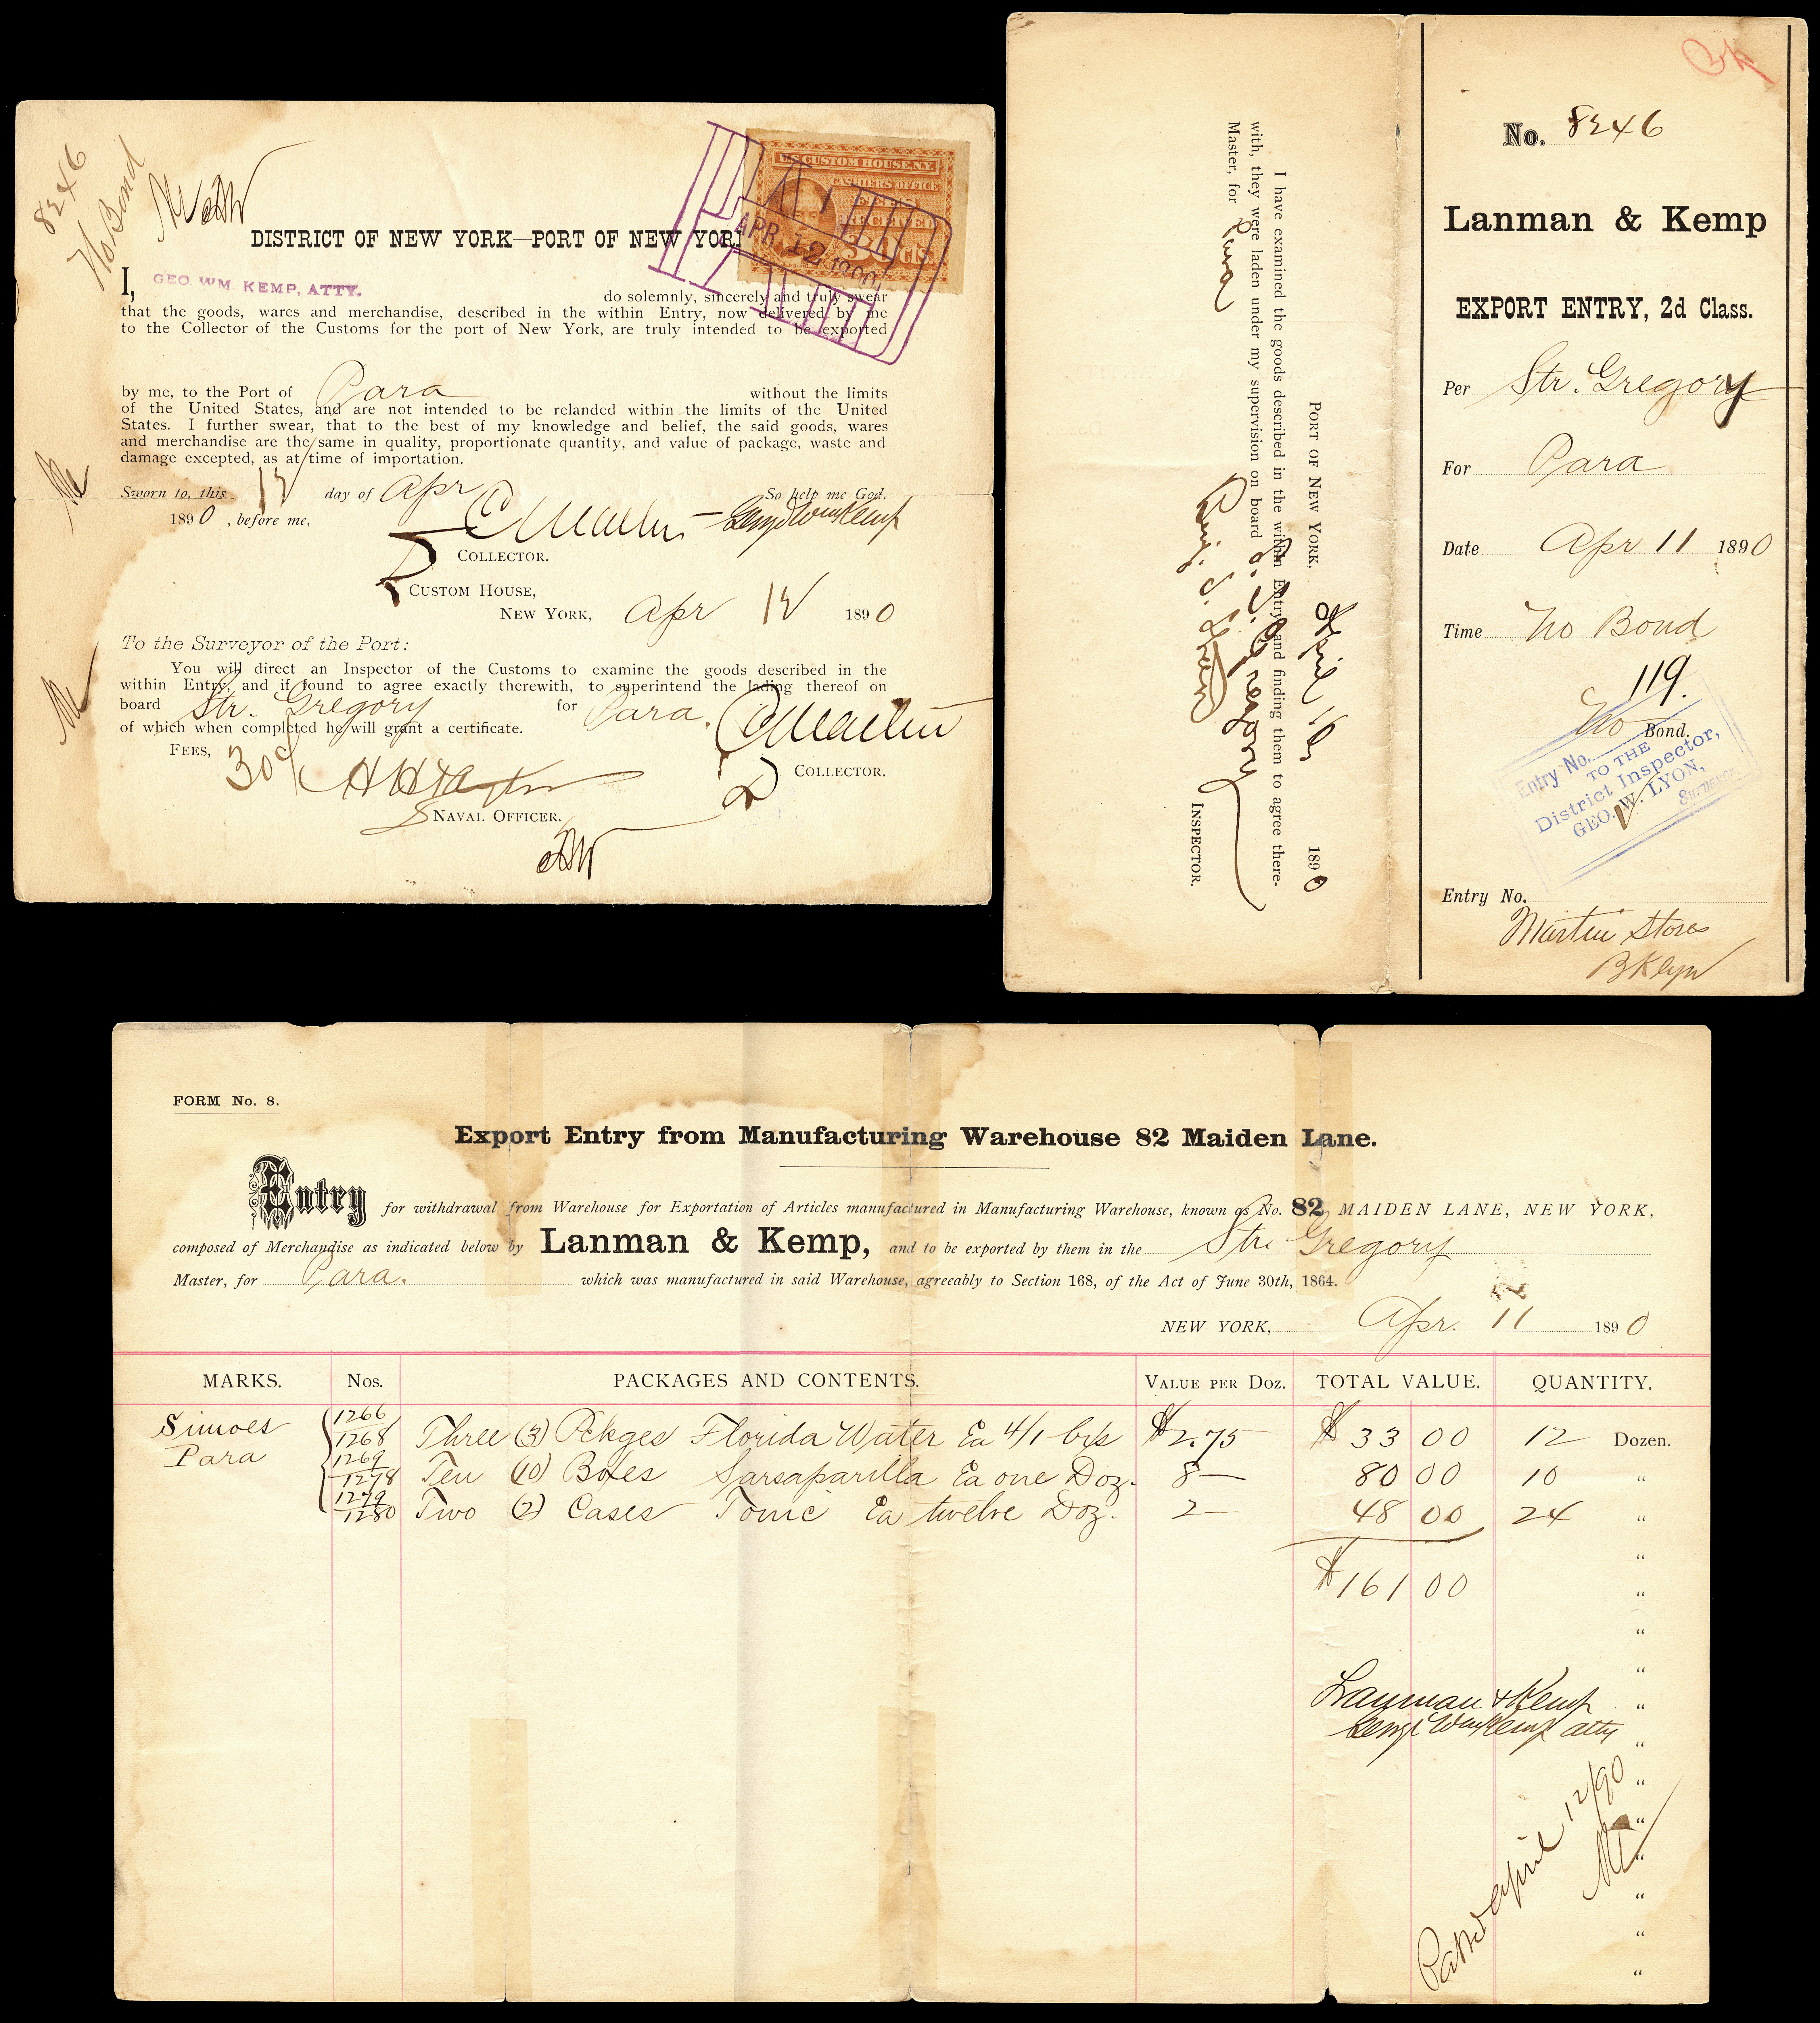 8246
No Bond
DISTRICT OF NEW YORK—PORT OF NEW YORK
U.S. CUSTOM HOUSE, N.Y.
CASHIERS OFFICE
FEES
RECEIVED
30 CTS.
APR 12 1890
I, GEO. WM KEMP, ATTY. do solemnly, sincerely and truly swear
that the goods, wares and merchandise, described in the within Entry, now delivered by me
to the Collector of the Customs for the port of New York, are truly intended to be exported
by me, to the Port of Para without the limits
of the United States, and are not intended to be relanded within the limits of the United
States. I further swear, that to the best of my knowledge and belief, the said goods, wares
and merchandise are the same in quality, proportionate quantity, and value of package, waste and
damage excepted, as at time of importation.
Sworn to, this 12 day of Apr So help me God.
1890, before me, Geo Wm Kemp
COLLECTOR.
CUSTOM HOUSE,
NEW YORK, Apr 12 1890
To the Surveyor of the Port:
You will direct an Inspector of the Customs to examine the goods described in the
within Entry, and if found to agree exactly therewith, to superintend the lading thereof on
board Str. Gregory for Para.
of which when completed he will grant a certificate.
FEES, 30c
COLLECTOR.
NAVAL OFFICER.
PORT OF NEW YORK, April 16 1890
I have examined the goods described in the within Entry, and finding them to agree there-
with, they were laden under my supervision on board S.S. Gregory
Master, for Para
INSPECTOR.
No. 8246
Lanman & Kemp
EXPORT ENTRY, 2d Class.
Per Str. Gregory
For Para
Date Apr 11 1890
Time No Bond
119.
No Bond.
Entry No.
TO THE
District Inspector,
GEO. W. LYON,
Surveyor.
Entry No.
Martin Stores
BKlyn
FORM No. 8.
Export Entry from Manufacturing Warehouse 82 Maiden Lane.
Entry for withdrawal from Warehouse for Exportation of Articles manufactured in Manufacturing Warehouse, known as No. 82 MAIDEN LANE, NEW YORK,
composed of Merchandise as indicated below by Lanman & Kemp, and to be exported by them in the Str Gregory
Master, for Para. which was manufactured in said Warehouse, agreeably to Section 168, of the Act of June 30th, 1864.
NEW YORK, Apr. 11 1890
MARKS. Nos. PACKAGES AND CONTENTS. VALUE PER DOZ. TOTAL VALUE. QUANTITY.
Simoes 1266 1268 Three (3) Pckges Florida Water Ea 4/1 bxs $2.75 $33 00 12 Dozen.
Para 1269 1278 Ten (10) Boxes Sarsaparilla Ea one Doz. 8— 80 00 10 "
1279 1280 Two (2) Cases Tonic Ea twelve Doz. 2— 48 00 24 "
$161 00
Lanman & Kemp
Geo Wm Kemp atty
April 12/90